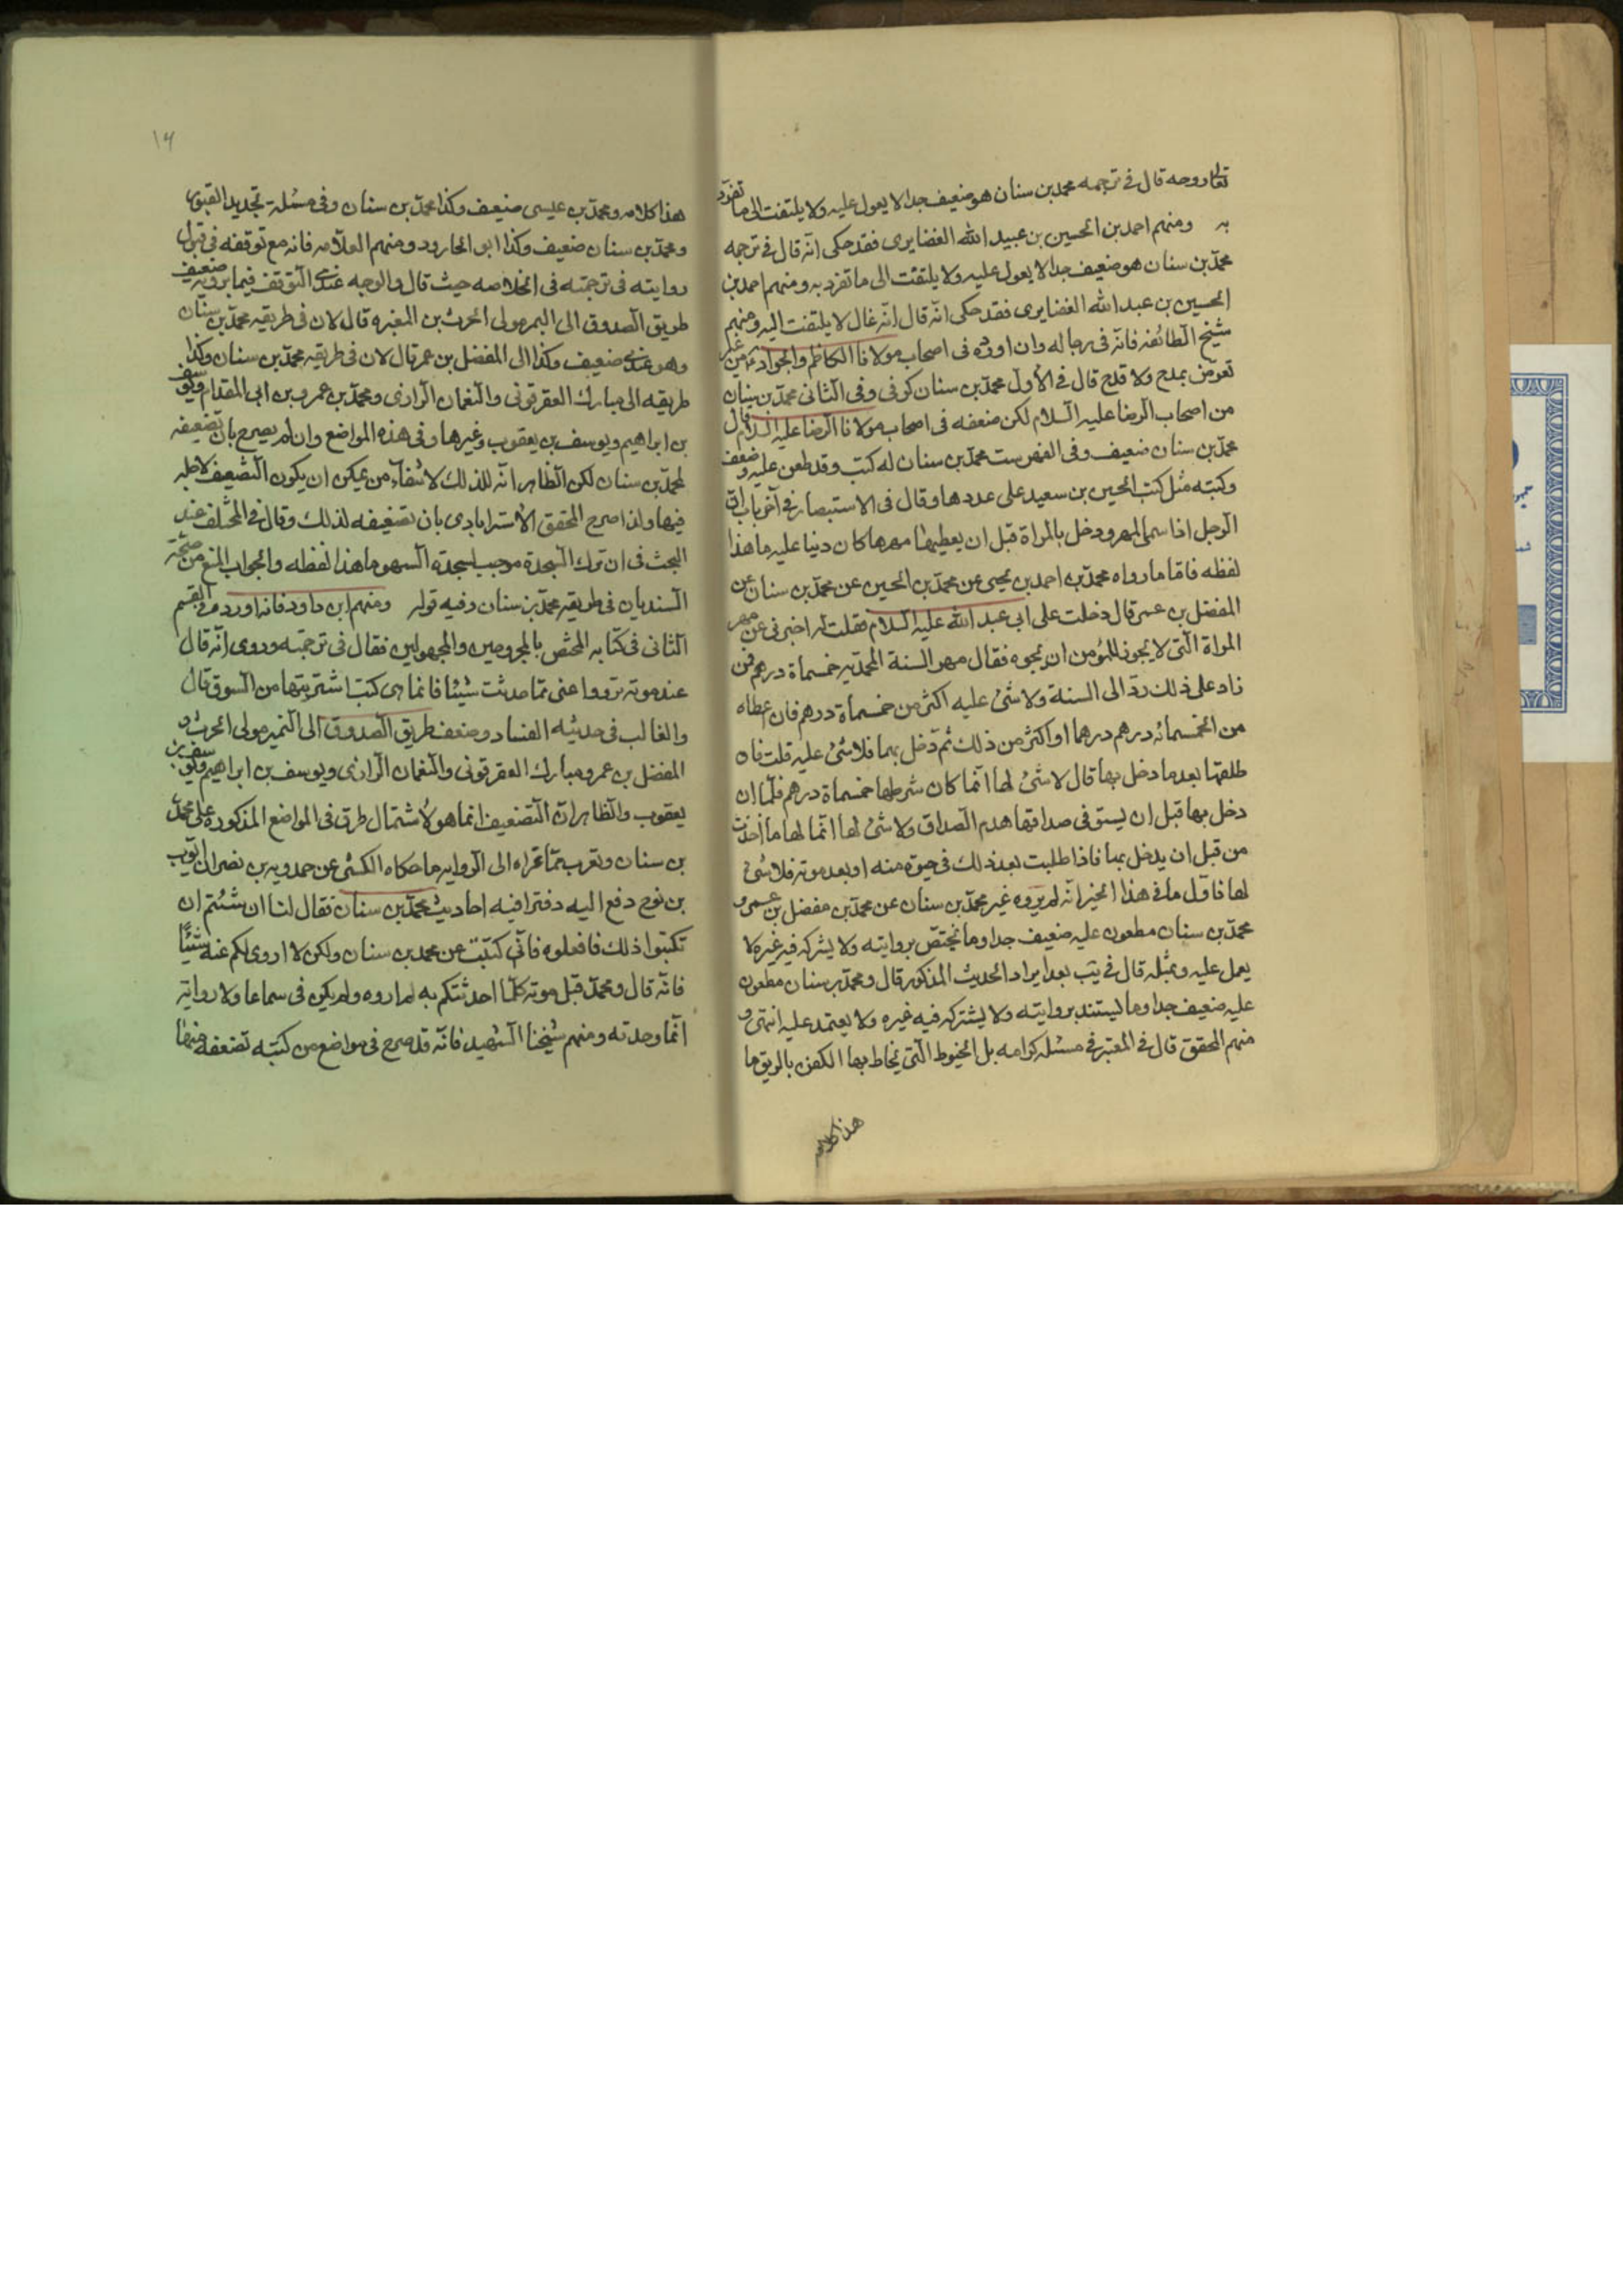 تعالی روحه قال فی ترجمه محمد بن سنان هو ضعیف جدا لا یعول علیه ولا یلتفت الی ما تفرد
به ومنهم احمد بن الحسین بن عبید الله الغضایری فقد حکی انه قال فی ترجمه
محمد بن سنان هو ضعیف جدا لا یعول علیه ولا یلتفت الی ما تفرد به ومنهم احمد بن
الحسین بن عبد الله الغضایری فقد حکی انه قال انه غال لا یلتفت الیه ومنهم
شیخ الطائفه فانه فی رجاله وان اورده فی اصحاب مولانا الکاظم والجواد ع من غیر
تعرض بمدح ولا قدح قال فی الاول محمد بن سنان کوفی وفی الثانی محمد بن سنان
من اصحاب الرضا علیه السلام لکن ضعفه فی اصحاب مولانا الرضا علیه السلام قال
محمد بن سنان ضعیف وفی الفهرست محمد بن سنان له کتب وقد طعن علیه وضعف
وکتبه مثل کتب الحسین بن سعید علی عددها وقال فی الاستبصار فی آخر باب ان
الرجل اذا سمی المهر ودخل بالمراة قبل ان یعطیها مهرها کان دینا علیه ما هذا
لفظه فاما ما رواه محمد بن احمد بن یحیی عن محمد بن الحسین عن محمد بن سنان عن
المفضل بن عمر قال دخلت علی ابی عبد الله علیه السلام فقلت له اخبرنی عن مهر
المراة التی لا یجوز للمؤمن ان یجوه فقال مهر السنة المحمدیه خمسمأة درهم فمن
زاد علی ذلک رد الی السنة ولا شئ علیه اکثر من خمسمأة درهم فان اعطاه
من الخمسمائه درهم درهما او اکثر من ذلک ثم دخل بها فلا شئ علیه قلت فان
طلقها بعد ما دخل بها قال لا شئ لها انما کان شرطها خمسمأة درهم فلما ان
دخل بها قبل ان یستوفی صداقها هدم الصداق ولا شئ لها انما لها ما اخذت
من قبل ان یدخل بها فاذا طلبت بعد ذلک فی حیوة منه او بعد موته فلا شئ
لها فاول ما فی هذا الخبر انه لم یروه غیر محمد بن سنان عن محمد بن مفضل بن عمر و
محمد بن سنان مطعون علیه ضعیف جدا وما یختص بروایته ولا یشرکه فیه غیره لا
یعمل علیه وبمثله قال فی یب بعد ایراد الحدیث المذکور قال ومحمد بن سنان مطعون
علیه ضعیف جدا وما یستند بروایته ولا یشترکه فیه غیره ولا یعتمد علیه انتهی و
منهم المحقق قال فی المعتبر فی مسئله کرامه بل الخیوط التی یخاط بها الکفن بالریق ما
هذا کلامه
۱۴
هذا کلامه ومحمد بن عیسی ضعیف وکذا محمد بن سنان وفی مسئلة تجدید القبور
ومحمد بن سنان ضعیف وکذا ابو الجارود ومنهم العلامه فانه مع توقفه فی قبول
روایته فی ترجمته فی الخلاصه حیث قال والوجه عندی التوقف فیما یرویه ضعیف
طریق الصدوق الی الیمر مولی الحرث بن المغیره قال لان فی طریقه محمد بن سنان
وهو عندی ضعیف وکذا الی المفضل بن عمر قال لان فی طریقه محمد بن سنان وکذا
طریقه الی مبارک العقرقوفی والنعمان الرازی ومحمد بن عمرو بن ابی المقدام ویوسف
بن ابراهیم ویوسف بن یعقوب وغیرها وفی هذه المواضع وان لم یصرح بان تضعیفه
لمحمد بن سنان لکن الظاهر انه لذلک لانتفاء من یمکن ان یکون التضعیف لاجله
فیها ولذا صرح المحقق الاسترابادی بان تضعیفه لذلک وقال فی المختلف عند
البحث فی ان ترک السجدة موجب لسجدة السهو ما هذا لفظه والجواب المنع من صحة
السند بان فی طریقه محمد بن سنان وفیه قول ومنهم ابن داود فانه اورده فی القسم
الثانی فی کتابه المختص بالمجروحین والمجهولین فقال فی ترجمته وروی انه قال
عند موته ترووا عنی مما حدثت شیئا فانما هی کتب اشتریتها من السوق قال
والغالب فی حدیثه الفساد وضعف طریق الصدوق الی النمیر مولی الحرث و
المفضل بن عمر ومبارک العقرقوفی والنعمان الرازی ویوسف بن ابراهیم ویوسف بن
یعقوب والظاهر ان التضعیف انما هو لاشتمال طرق فی المواضع المذکوره علی محمد
بن سنان ویقرب مما عزاه الی الروایه ما حکاه الکشی عن حمدویه بن نصیر ان ایوب
بن نوح دفع الیه دفترا فیه احادیث محمد بن سنان فقال لنا ان شئتم ان
تکتبوا ذلک فافعلوه فانی کتبت عن محمد بن سنان ولکن لا اروی لکم عنه شیئا
فانه قال ومحمد قبل موته کلما احدثتکم به لم اروه ولم یکن فی سماعا ولا روایة
انما وجدته ومنهم شیخنا الشهید فانه قد صرح فی مواضع من کتبه تضعفه فمنها